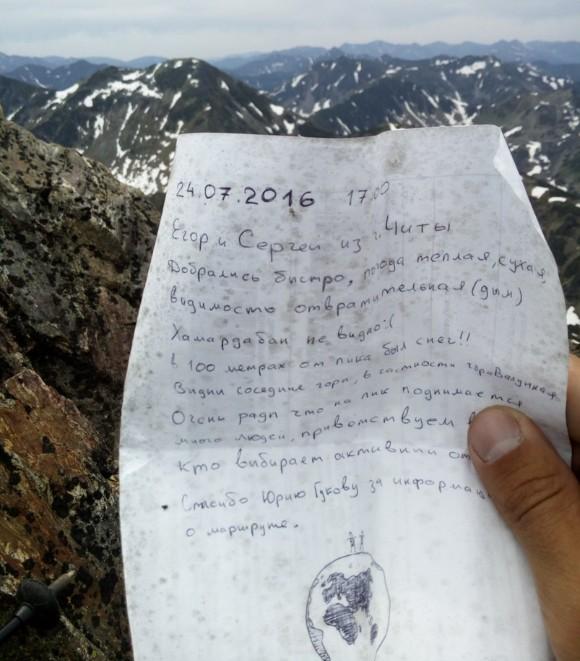 24.07.2016 17.00
Егор и Сергей из "Читы
Добрались быстро, погода тёплая, сухая,
видимость отвратительная (дым)
Хамардабан не видно:(
в 100 метрах от пика был снег!!
Видни соседние гори, в частности гора
Очень ради что на пик поднимается
много людей, приветствуем
кто выбирает активний от
Спасибо Юрию Гукову за информац
о маршруте.